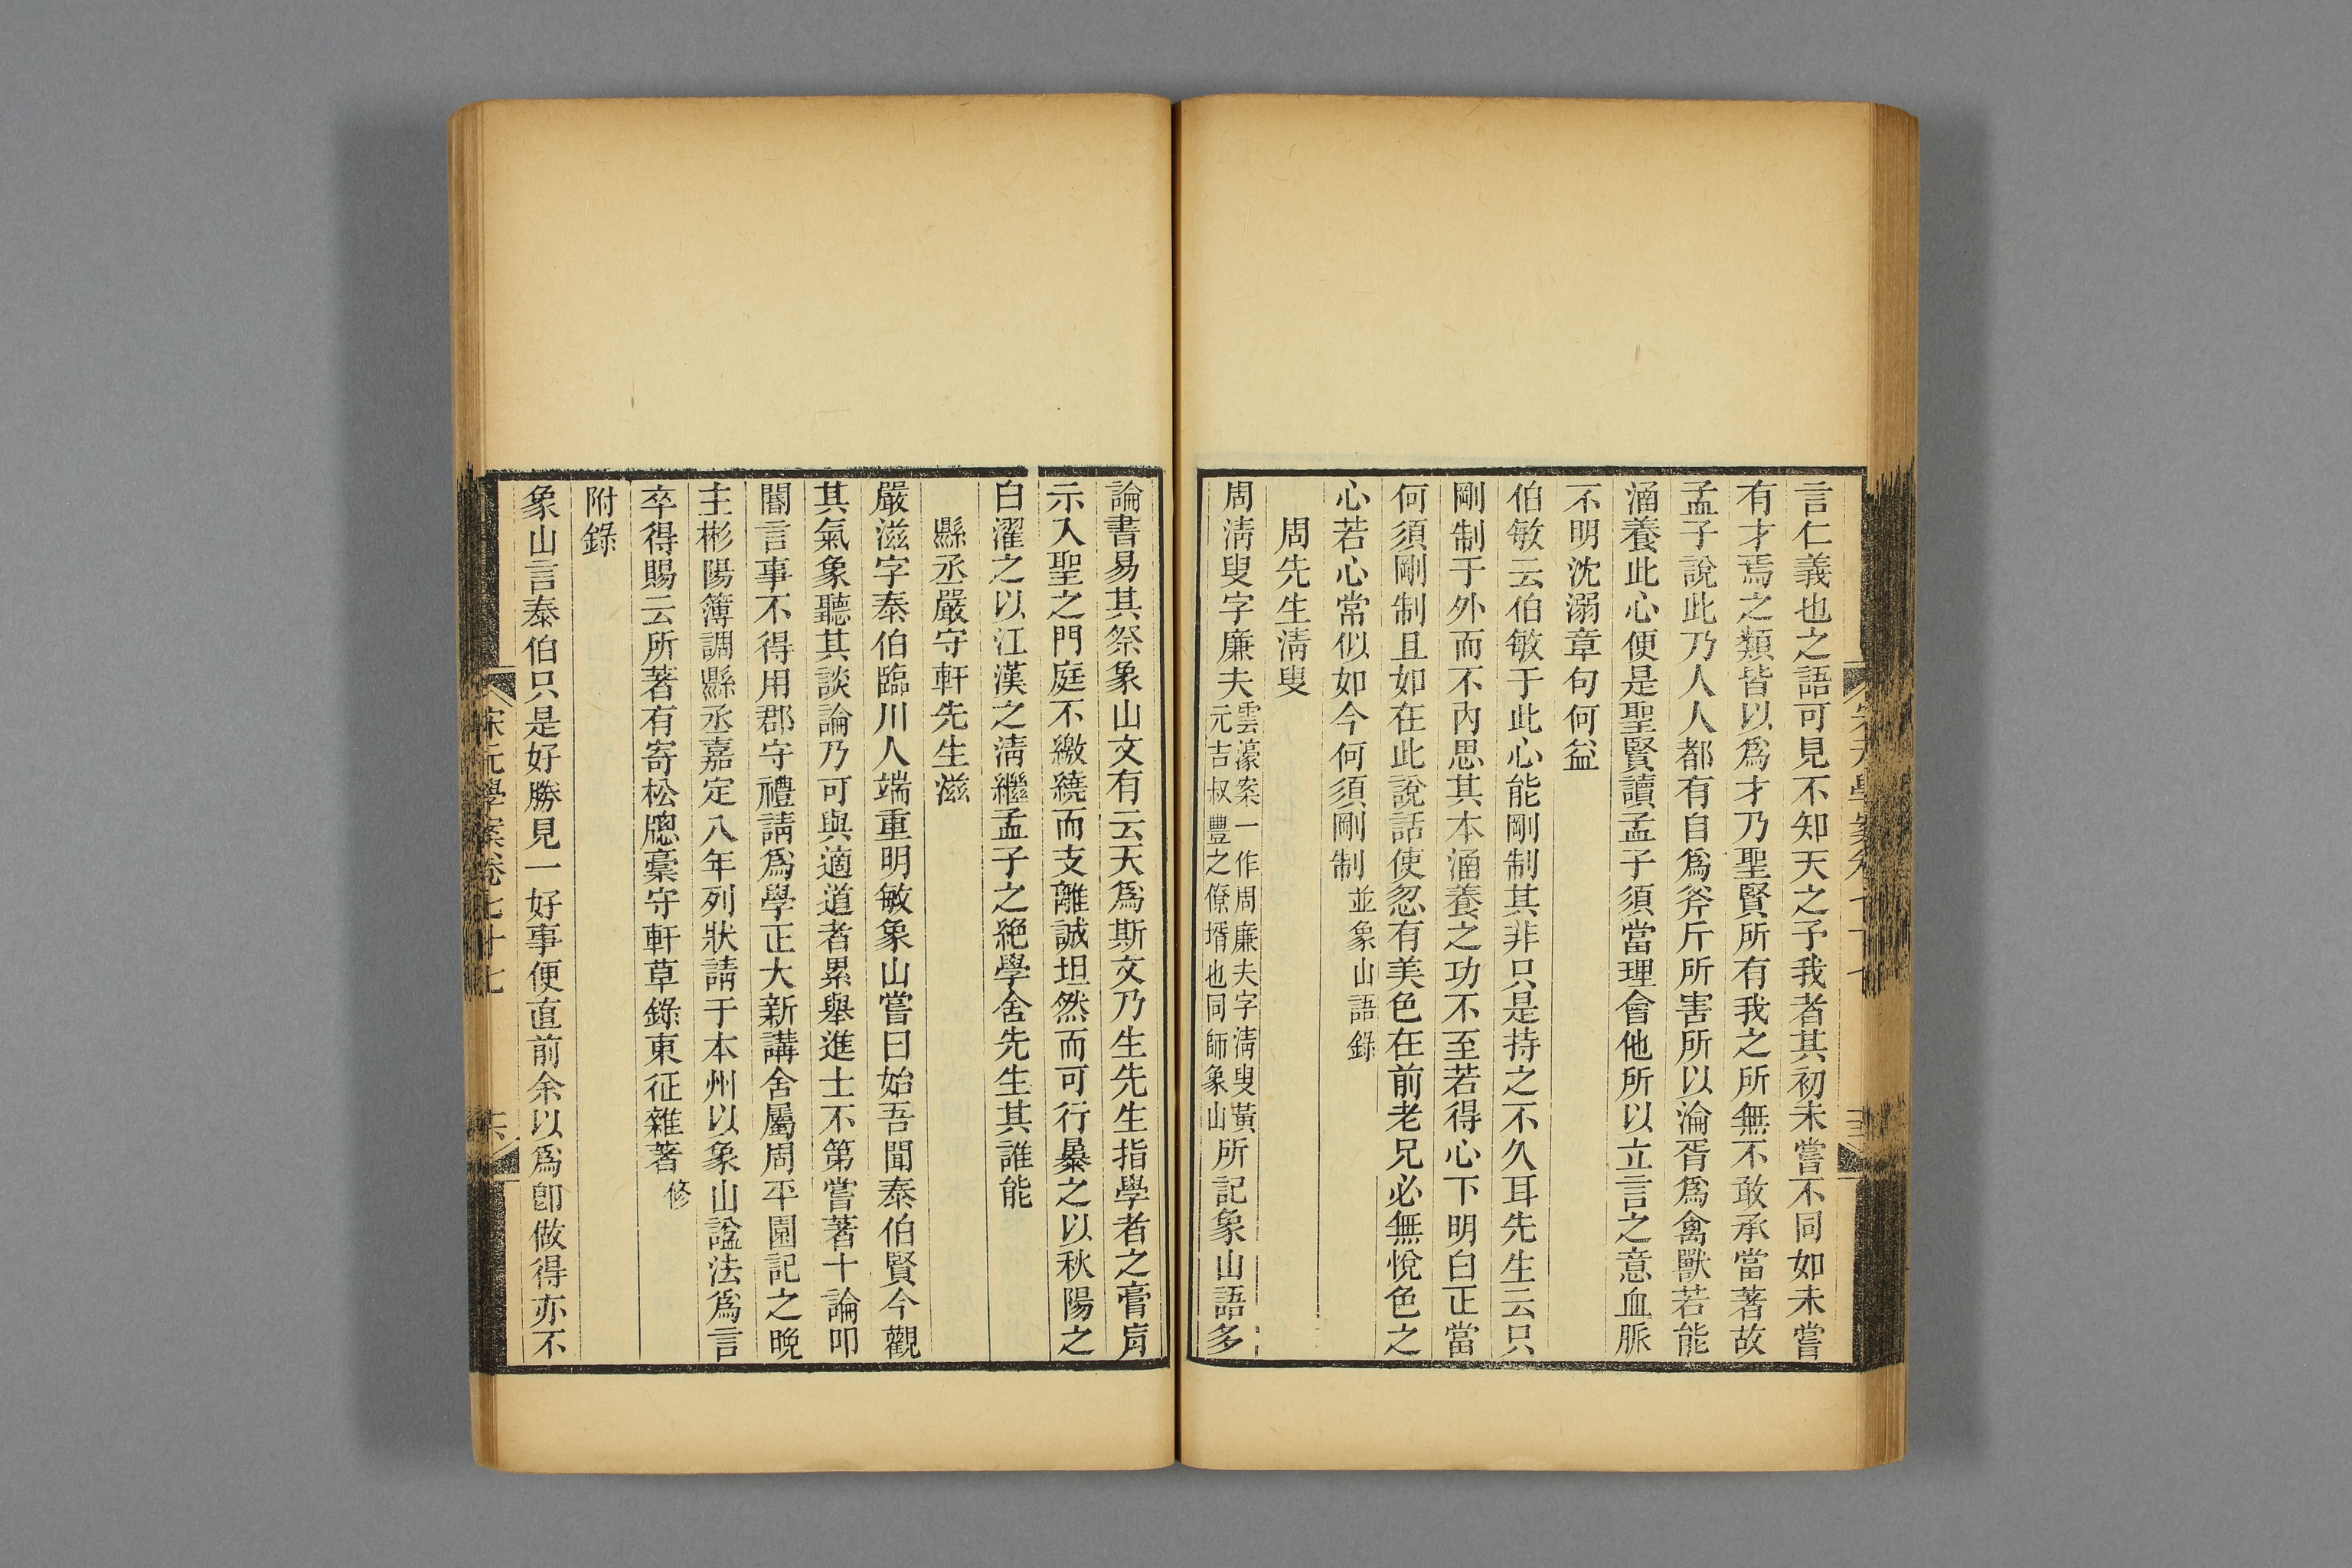 言仁義也之語可見不知天之予我者其初未嘗不同如未嘗
有才焉之類皆以爲才乃聖賢所有我之所無不敢承當著故
孟子說此乃人人都有自爲斧斤所害所以淪胥爲禽獸若能
涵養此心便是聖賢讀孟子須當理會他所以立言之意血脈
不明沈溺章句何益
伯敏云伯敏于此心能剛制其非只是持之不久耳先生云只
剛制于外而不內思其本涵養之功不至若得心下明白正當
何須剛制且如在此說話使忽有美色在前老兄必無悅色之
心若心常似如今何須剛制並象山語錄
周先生淸叟
周淸叟字廉夫雲濠案一作周廉夫字淸叟黃元吉叔豐之僚壻也同師象山所記象山語多
論書易其祭象山文有云天爲斯文乃生先生指學者之膏肓
示入聖之門庭不繳繞而支離誠坦然而可行暴之以秋陽之
白濯之以江漢之淸繼孟子之絕學舍先生其誰能
縣丞嚴守軒先生滋
嚴滋字泰伯臨川人端重明敏象山嘗曰始吾聞泰伯賢今觀
其氣象聽其談論乃可與適道者累舉進士不第嘗著十論叩
閽言事不得用郡守禮請爲學正大新講舍屬周平園記之晚
主彬陽簿調縣丞嘉定八年列狀請于本州以象山諡法爲言
卒得賜云所著有寄松牕藁守軒草錄東征雜著修
附錄
象山言泰伯只是好勝見一好事便直前余以爲卽做得亦不
宋元學案卷七十七